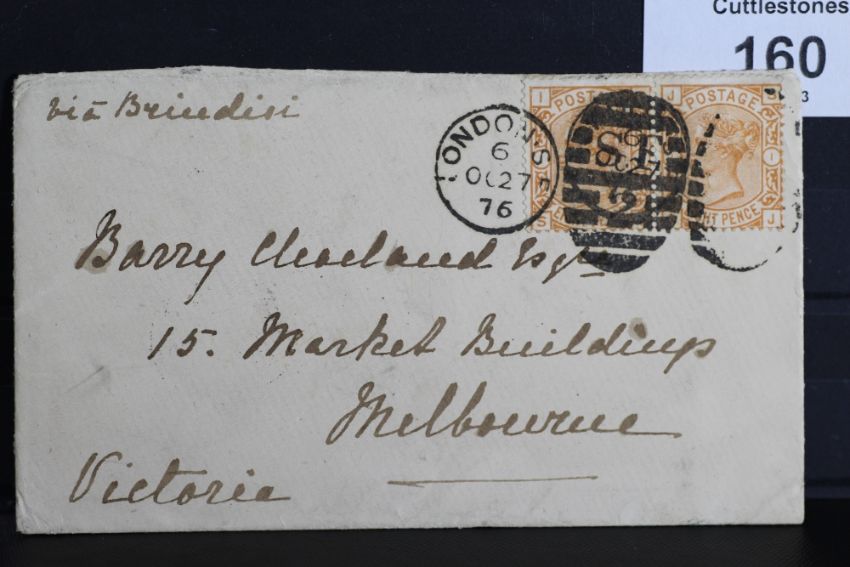 Cuttlestones
160
3
via Brindisi
LONDON.S.E
6
OC27
76
POSTAGE
POSTAGE
I
J
S.E
6
OC27
2
I
S
J
HT PENCE
Barry Esqre
15. Market Buildings
Melbourne
Victoria